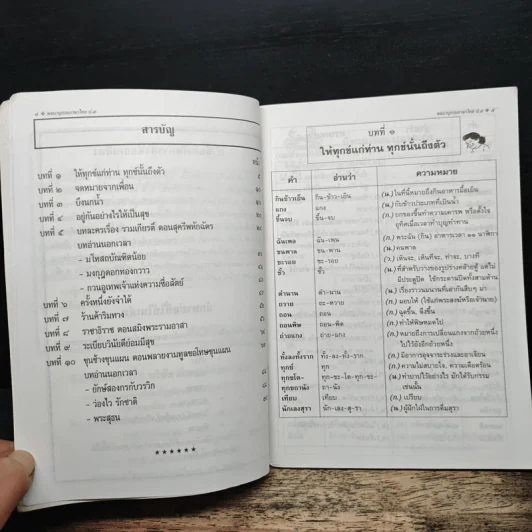 ๘ ❖ พจนานุกรมภาษาไทย ป.๓
สารบัญ
หน้า
บทที่ ๑ ให้ทุกข์แก่ท่าน ทุกข์นั้นถึงตัว
บทที่ ๒ จดหมายจากเพื่อน
บทที่ ๓ บึงนกน้ำ
บทที่ ๔ อยู่กันอย่างไรให้เป็นสุข
บทที่ ๕ บทละครเรื่อง รามเกียรติ์ ตอนสุครีพหักฉัตร
บทอ่านนอกเวลา
- มโหสถบัณฑิตน้อย
- มงกุฎดอกทองกวาว
- กวนอูเทพเจ้าแห่งความซื่อสัตย์
บทที่ ๖ ครั้งหนึ่งยังจำได้
บทที่ ๗ ร้านค้าริมทาง
บทที่ ๘ ราชาธิราช ตอนสมิงพระรามอาสา
บทที่ ๙ ระเบียบวินัยดีย่อมมีสุข
บทที่ ๑๐ ขุนช้างขุนแผน ตอนพลายงามทูลขอโทษขุนแผน
บทอ่านนอกเวลา
- ยักษ์สองกรกับวรวิก
- ว่องไว รักชาติ
- พระสุธน
******
บทที่ ๑
ให้ทุกข์แก่ท่าน ทุกข์นั้นถึงตัว
คำ อ่านว่า ความหมาย
กินข้าวเย็น กิน-ข้าว-เย็น (น.) ในที่นี้หมายถึงกินอาหารมื้อเย็น
แกง แกง (น.) กับข้าวประเภทที่เป็นน้ำ
ขึ้นจบ ขึ้น-จบ (ก.) ยกของขึ้นทำความเคารพ หรือตั้งใจ
อุทิศเมื่อเวลาทำบุญทำทาน
ฉันเพล ฉัน-เพน (ก.) พระฉัน (กิน) อาหารเวลา ๑๑ นาฬิกา
ชนพาน ชน-พาน (น.) คนพาล
ชะรอย ชะ-รอย (ว.) เห็นจะ, เห็นที่จะ, ท่าจะ, บางที
ตำนาน ตำ-นาน (น.) เรื่องราวนมนานที่เล่ากันสืบๆ มา
ถวาย ถะ-หวาย (ก.) มอบให้ (ใช้แก่พระสงฆ์หรือเจ้านาย)
ถอน ถอน (ก.) ฉุดขึ้น, ดึงขึ้น
ถอนพิษ ถอน-พิด (ก.) ทำให้พิษหมดไป
ถ่ายแกง ถ่าย-แกง (ก.) หมายถึงการเปลี่ยนแกงจากถ้วยหนึ่ง
ไปไว้ยังอีกถ้วยหนึ่ง
ทั้งลงทั้งราก ทั้ง-ลง-ทั้ง-ราก (ก.) มีอาการอุจจาระร่วงและอาเจียน
ทุกข์ ทุก (ก.) ความไม่สบายใจ, ความเดือดร้อน
เทียบ เทียบ (ก.) เปรียบ
นักเลงสุรา นัก-เลง-สุ-รา (น.) ผู้ฝักใฝ่ในการดื่มสุรา